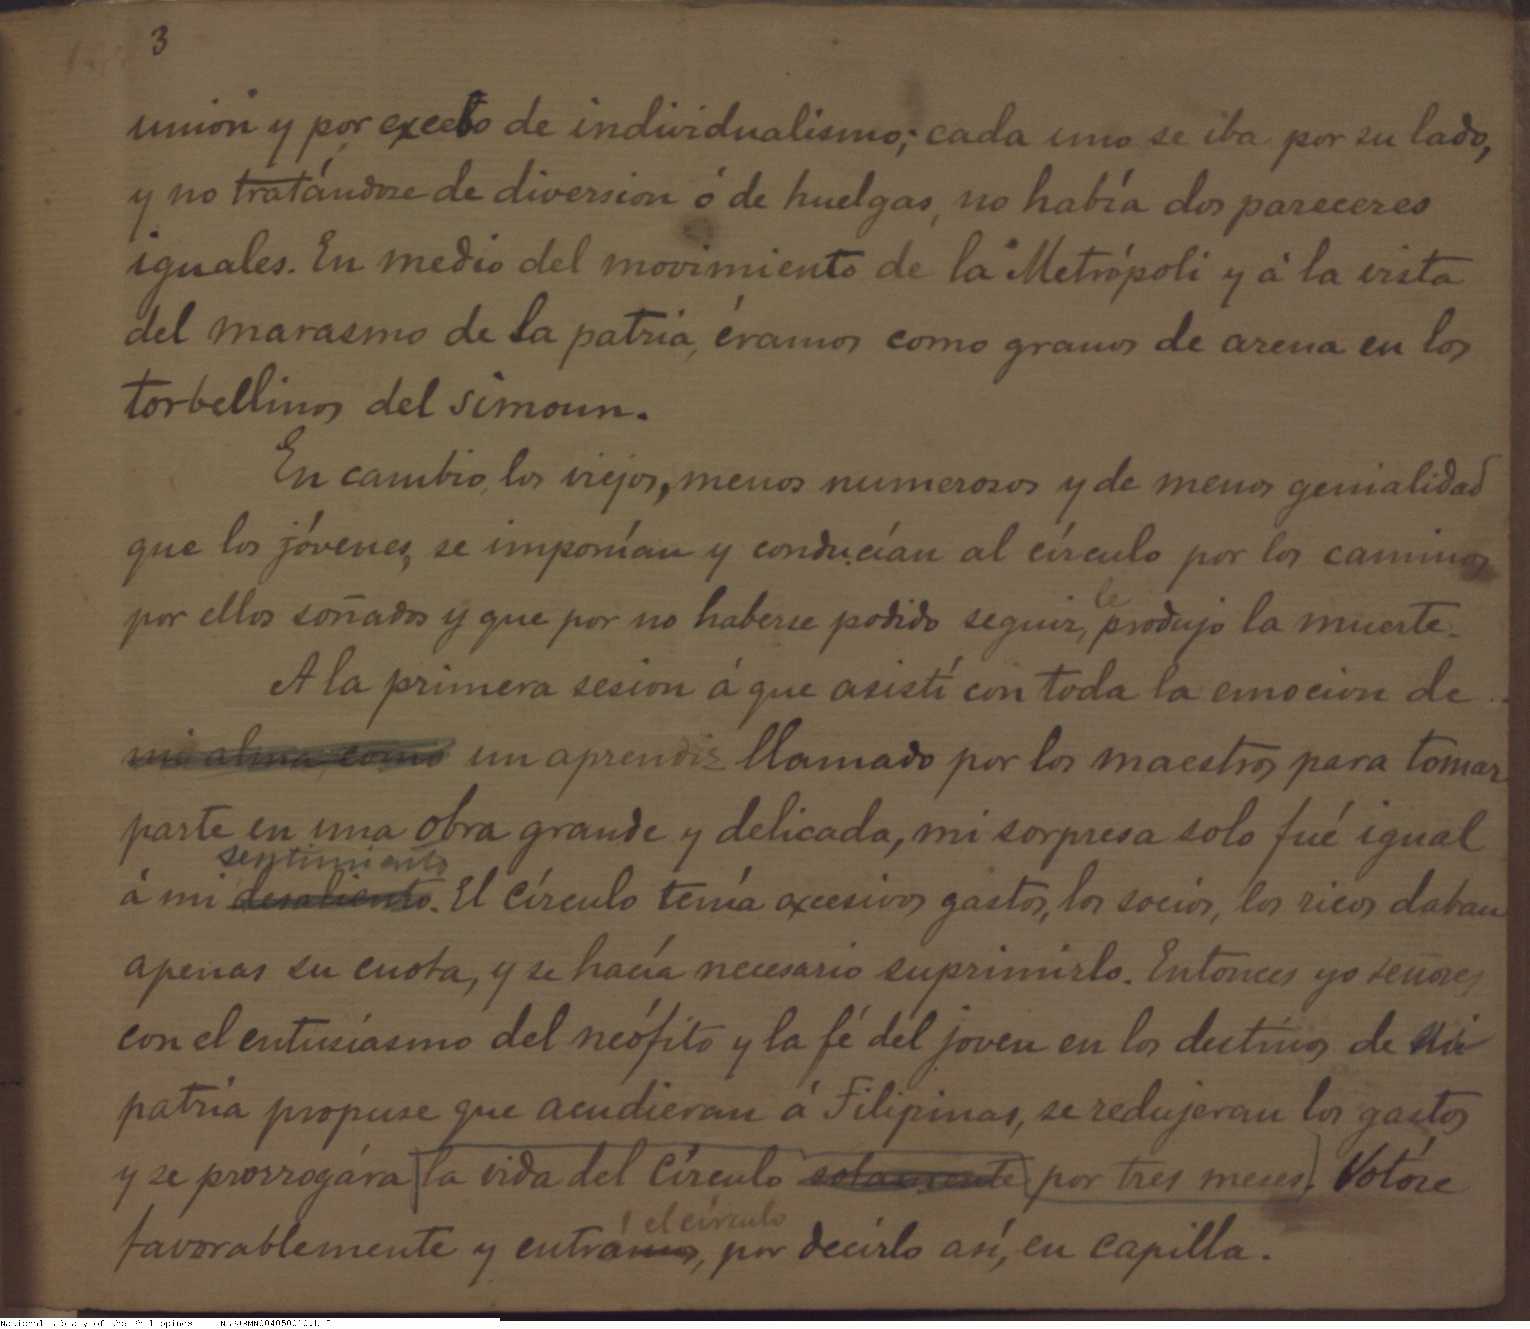 3
unión y por exceso de individualismo; cada uno se iba por su lado,
y no tratándose de diversion ó de huelgas, no había dos pareceres
iguales. En medio del movimiento de la Metrópoli y á la vista
del marasmo de la patria, éramos como granos de arena en los
torbellinos del simoun.
En cambio, los viejos, menos numerosos y de menos genialidad
que los jóvenes, se imponían y conducían al círculo por los caminos
le
por ellos soñados y que por no haberse podido seguir, produjo la muerte.
A la primera sesion á que asistí con toda la emocion de
mi alma, como un aprendiz llamado por los maestros para tomar
parte en una obra grande y delicada, mi sorpresa solo fué igual
sentimiento
á mi desaliento. El Círculo tenía excesivos gastos, los socios, los ricos daban
apenas su cuota, y se hacía necesario suprimirlo. Entonces yo señores
con el entusiasmo del neófito y la fé del joven en los destinos de su
patria propuse que acudieran á Filipinas, se redujeran los gastos
y se prorrogára la vida del Círculo solamente por tres meses. Votóse
el círculo
favorablemente y entrámos, por decirlo así, en capilla.
National Library of the Philippines